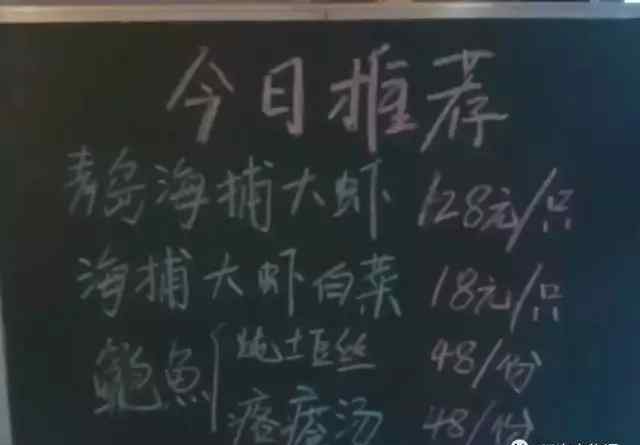 今日推荐
青岛海捕大虾 128元/只
海捕大虾白菜 18元/只
鲍魚 炖土豆丝 48/份
疙瘩汤 48/份